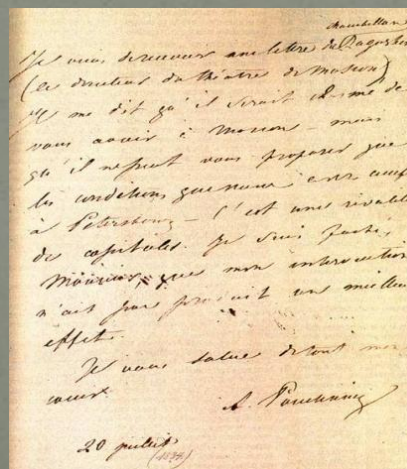 chambellan
Je viens de recevoir une lettre de Zagoskin
(le directeur du théâtre de Moscou)
Il me dit qu'il serait charmé de
vous avoir à Moscou – mais
qu'il ne peut vous proposer que
les conditions que vous
à Petersbourg – C'est une rivalité
de capitales. Je suis faché,
Monsieur, que mon intervention
n'ait pas produit un meilleur
effet.
Je vous salue de tout mon
cœur.
A. Pouchkine
20 juillet